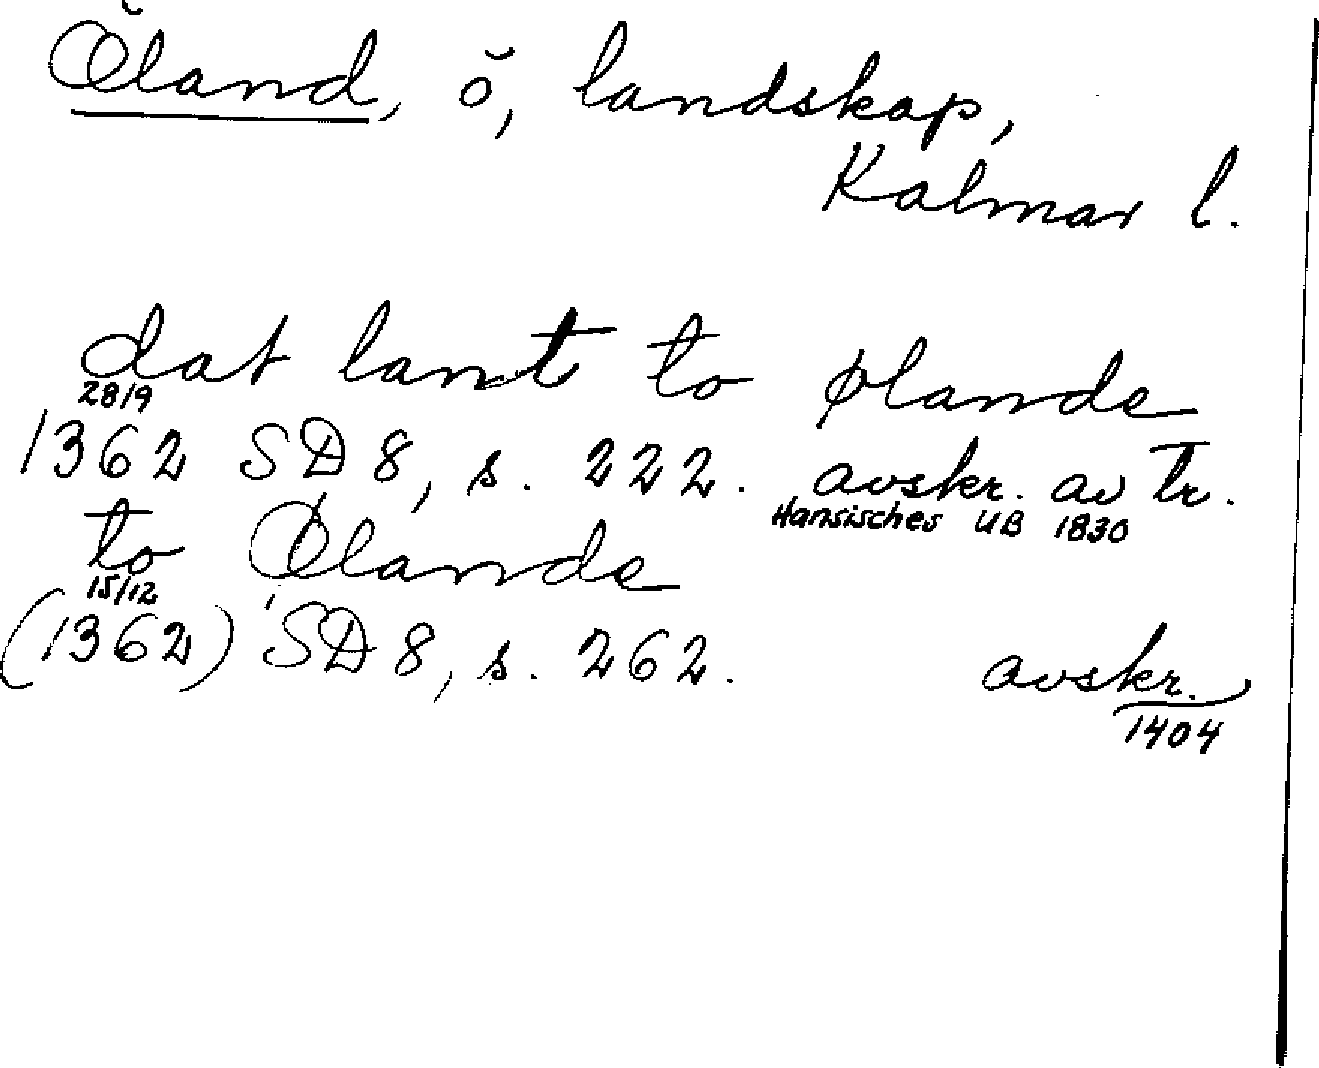 Öland, ö, landskap,
Kalmar l.
dat lant to ølande
28/9
1362 SD 8, s. 222. avskr. av tr.
Hansisches UB 1830
to Ølande
15/12
(1362) SD 8, s. 262. avskr.
1404